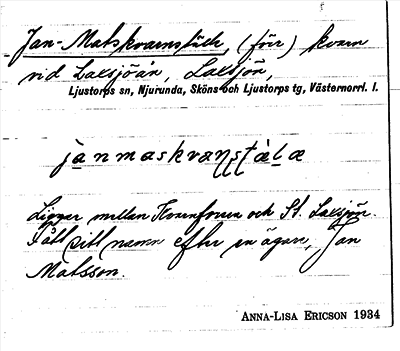 Jan-Matskvarnställe, (förr) kvarn
vid Laxsjöån, Laxsjön,
Ljustorps sn, Njurunda, Sköns och Ljustorps tg, Västernorrl. l.
janmaskvaɳʂʈälæ
Ligger mellan Kvarnforsen och St. Laxsjön.
Fått sitt namn efter en ägare, Jan
Matsson.
ANNA-LISA ERICSON 1934